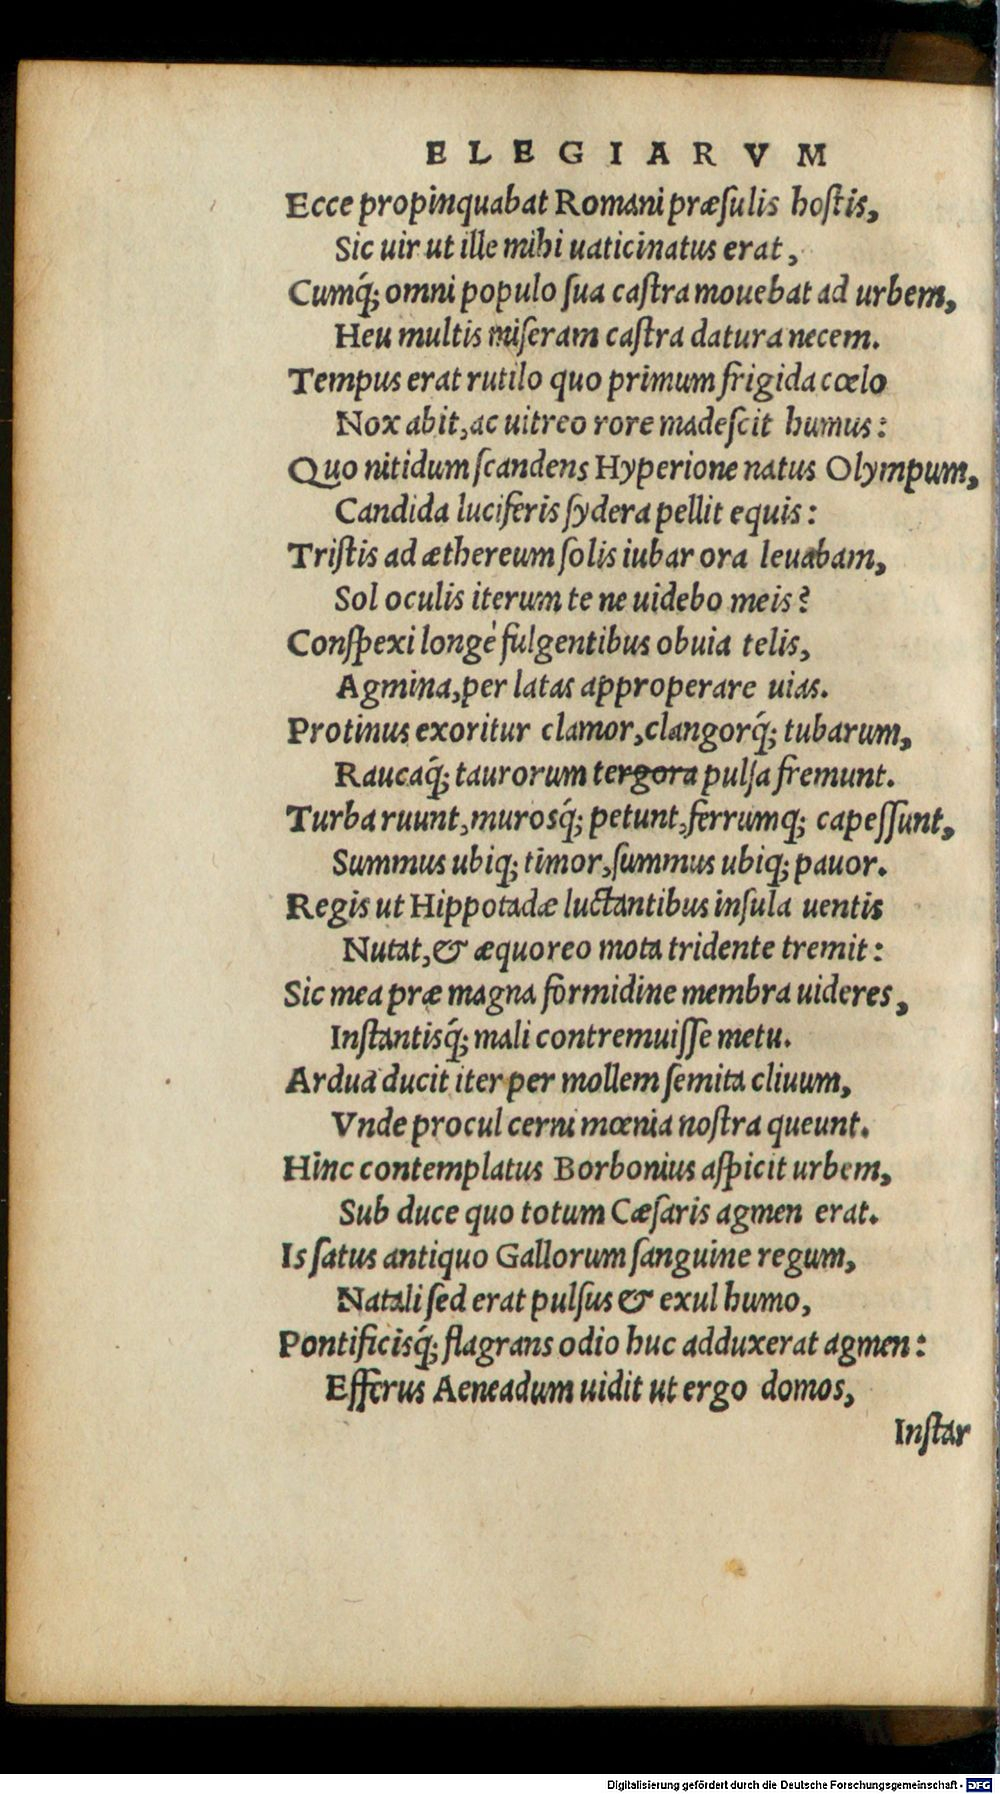 ELEGIARVM
Ecce propinquabat Romani præſulis hoſtis,
Sic uir ut ille mihi uaticinatus erat,
Cumq́; omni populo ſua caſtra mouebat ad urbem,
Heu multis miſeram caſtra datura necem.
Tempus erat rutilo quo primum frigida cœlo
Nox abit, ac uitreo rore madeſcit humus:
Quo nitidum ſcandens Hyperione natus Olympum,
Candida luciferis ſydera pellit equis:
Triſtis ad æthereum ſolis iubar ora leuabam,
Sol oculis iterum te ne uidebo meis?
Conſpexi longè fulgentibus obuia telis,
Agmina, per latas approperare uias.
Protinus exoritur clamor, clangorq́; tubarum,
Raucaq́; taurorum tergora pulſa fremunt.
Turba ruunt, murosq́; petunt, ferrumq; capeſſunt,
Summus ubiq; timor, ſummus ubiq; pauor.
Regis ut Hippotadæ luctantibus inſula uentis
Nutat, & æquoreo mota tridente tremit:
Sic mea præ magna formidine membra uideres,
Inſtantisq́; mali contremuiſſe metu.
Ardua ducit iter per mollem ſemita cliuum,
Vnde procul cerni mœnia noſtra queunt.
Hinc contemplatus Borbonius aſpicit urbem,
Sub duce quo totum Cæſaris agmen erat.
Is ſatus antiquo Gallorum ſanguine regum,
Natali ſed erat pulſus & exul humo,
Pontificisq́; flagrans odio huc adduxerat agmen:
Efferus Aeneadum uidit ut ergo domos,
Inſtar
Digitalisierung gefördert durch die Deutsche Forschungsgemeinschaft - DFG